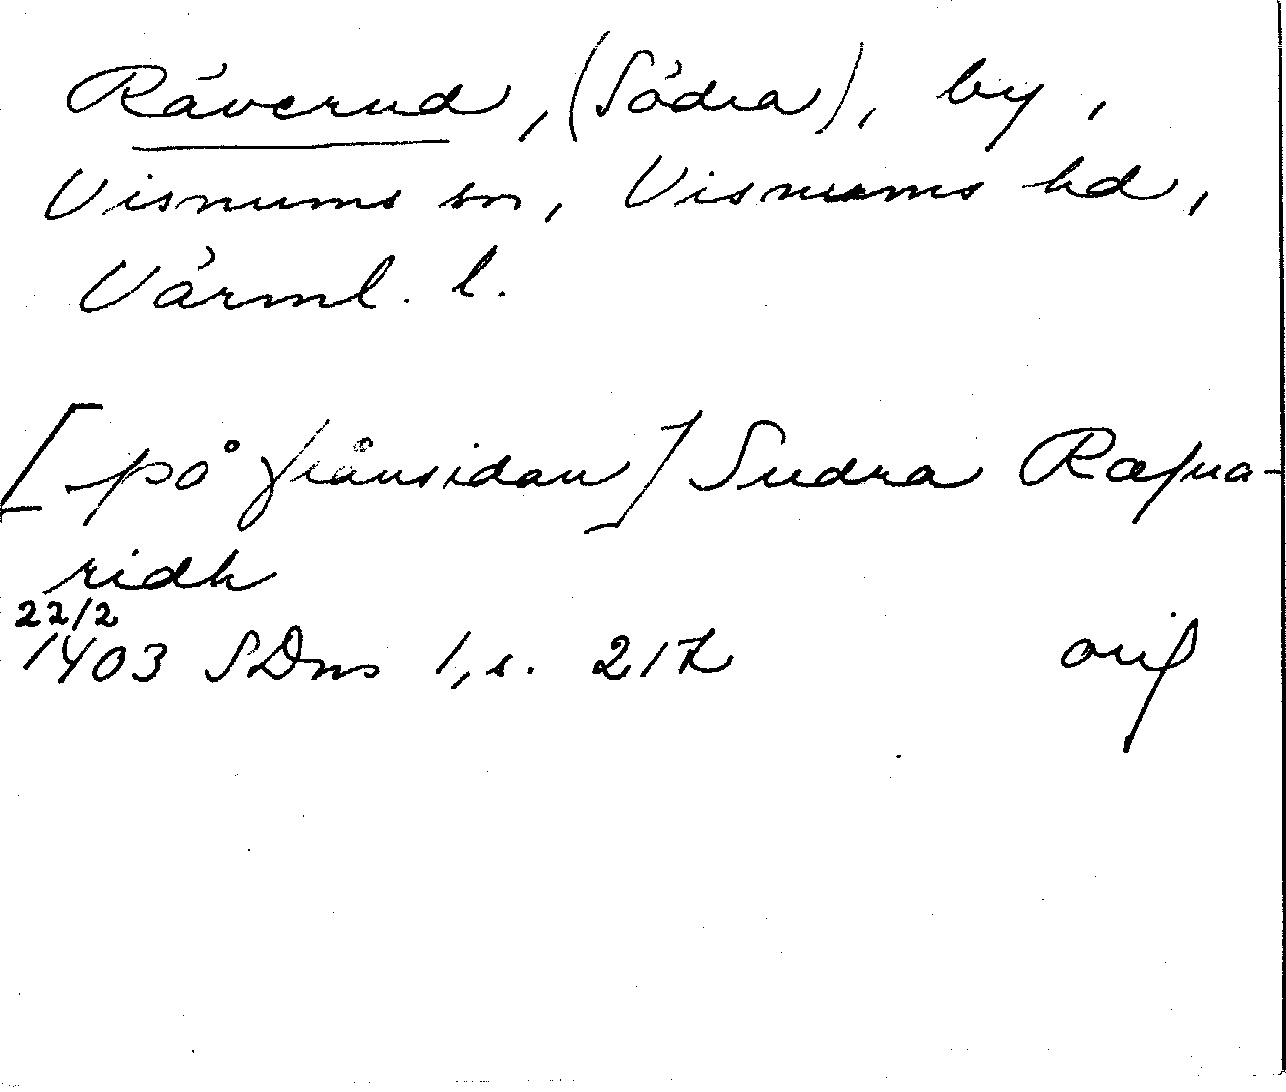 Räverud, (Södra), by,
Visnums sn, Visnums hd,
Värml. l.
[på frånsidan] Sudra Ræfua-
ridh
22/2
1403 SDns 1, s. 217 orig